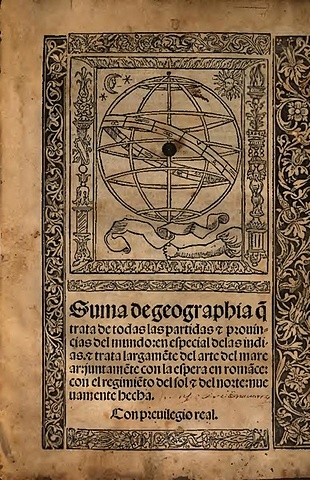 Suma de geographia q̃
trata de todas las partidas ⁊ prouin-
cias del mundo: en especial delas indi-
as. ⁊ trata largamẽte del arte del mare
ar: juntamẽte con la espera en romãce:
con el regimiẽto del sol ⁊ del norte: nue
uamente hecha.
Con preuilegio real.